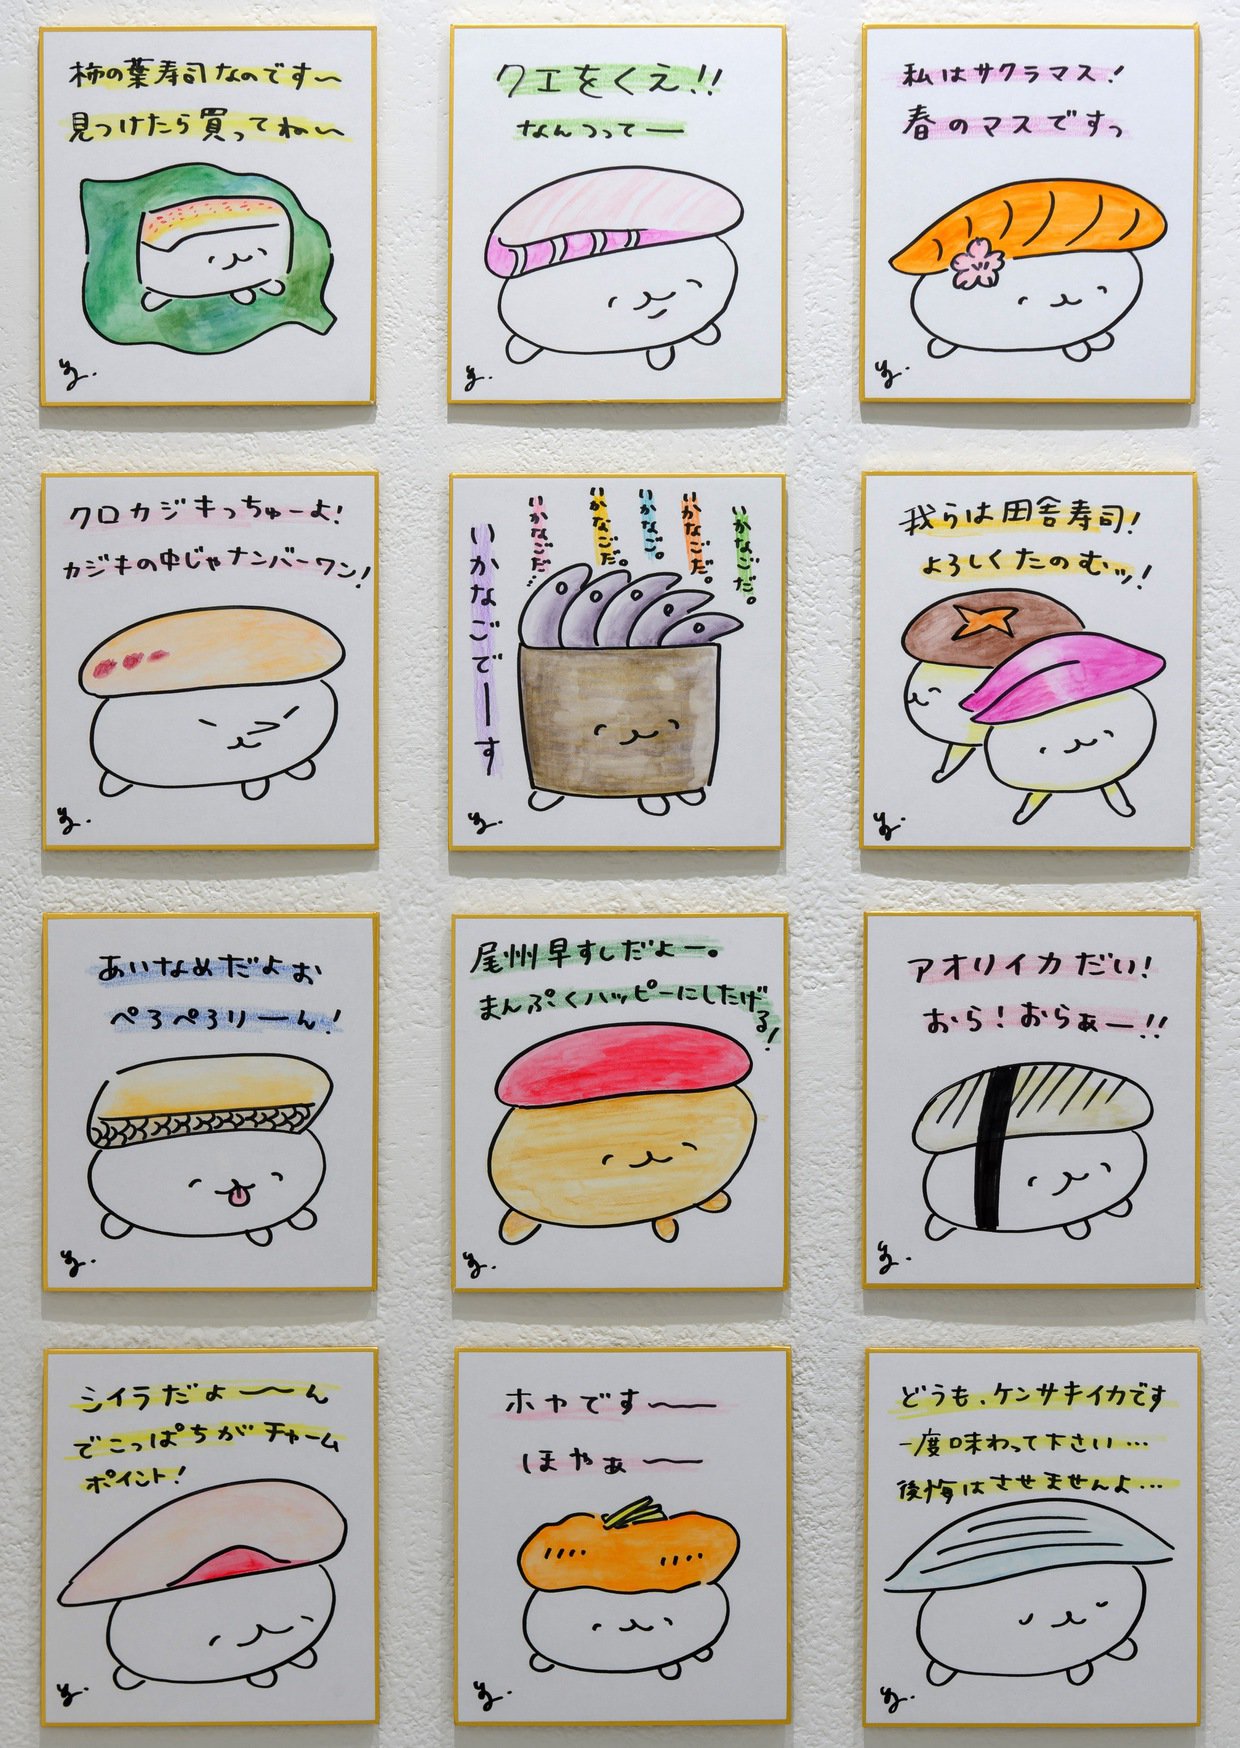 柿の葉寿司なのです〜
見つけたら買ってね〜
クエをくえ!!
なんつってー
私はサクラマス!
春のマスですっ
クロカジキっちゅーよ!
カジキの中じゃナンバーワン!
いかなごでーす
いかなごだ。
いかなごだ。
いかなご。
いかなごだ。
いかなごだ。
我らは田舎寿司!
よろしくたのむッ!
あいなめだよぉ
ぺろぺろりーん!
尾州早すしだよー。
まんぷくハッピーにしたげる!
アオリイカだい!
おら!おらぁー!!
シイラだよ〜〜ん
でこっぱちがチャーム
ポイント!
ホヤです〜
ほやぁ〜
どうも、ケンサキイカです
一度味わって下さい…
後悔はさせませんよ…